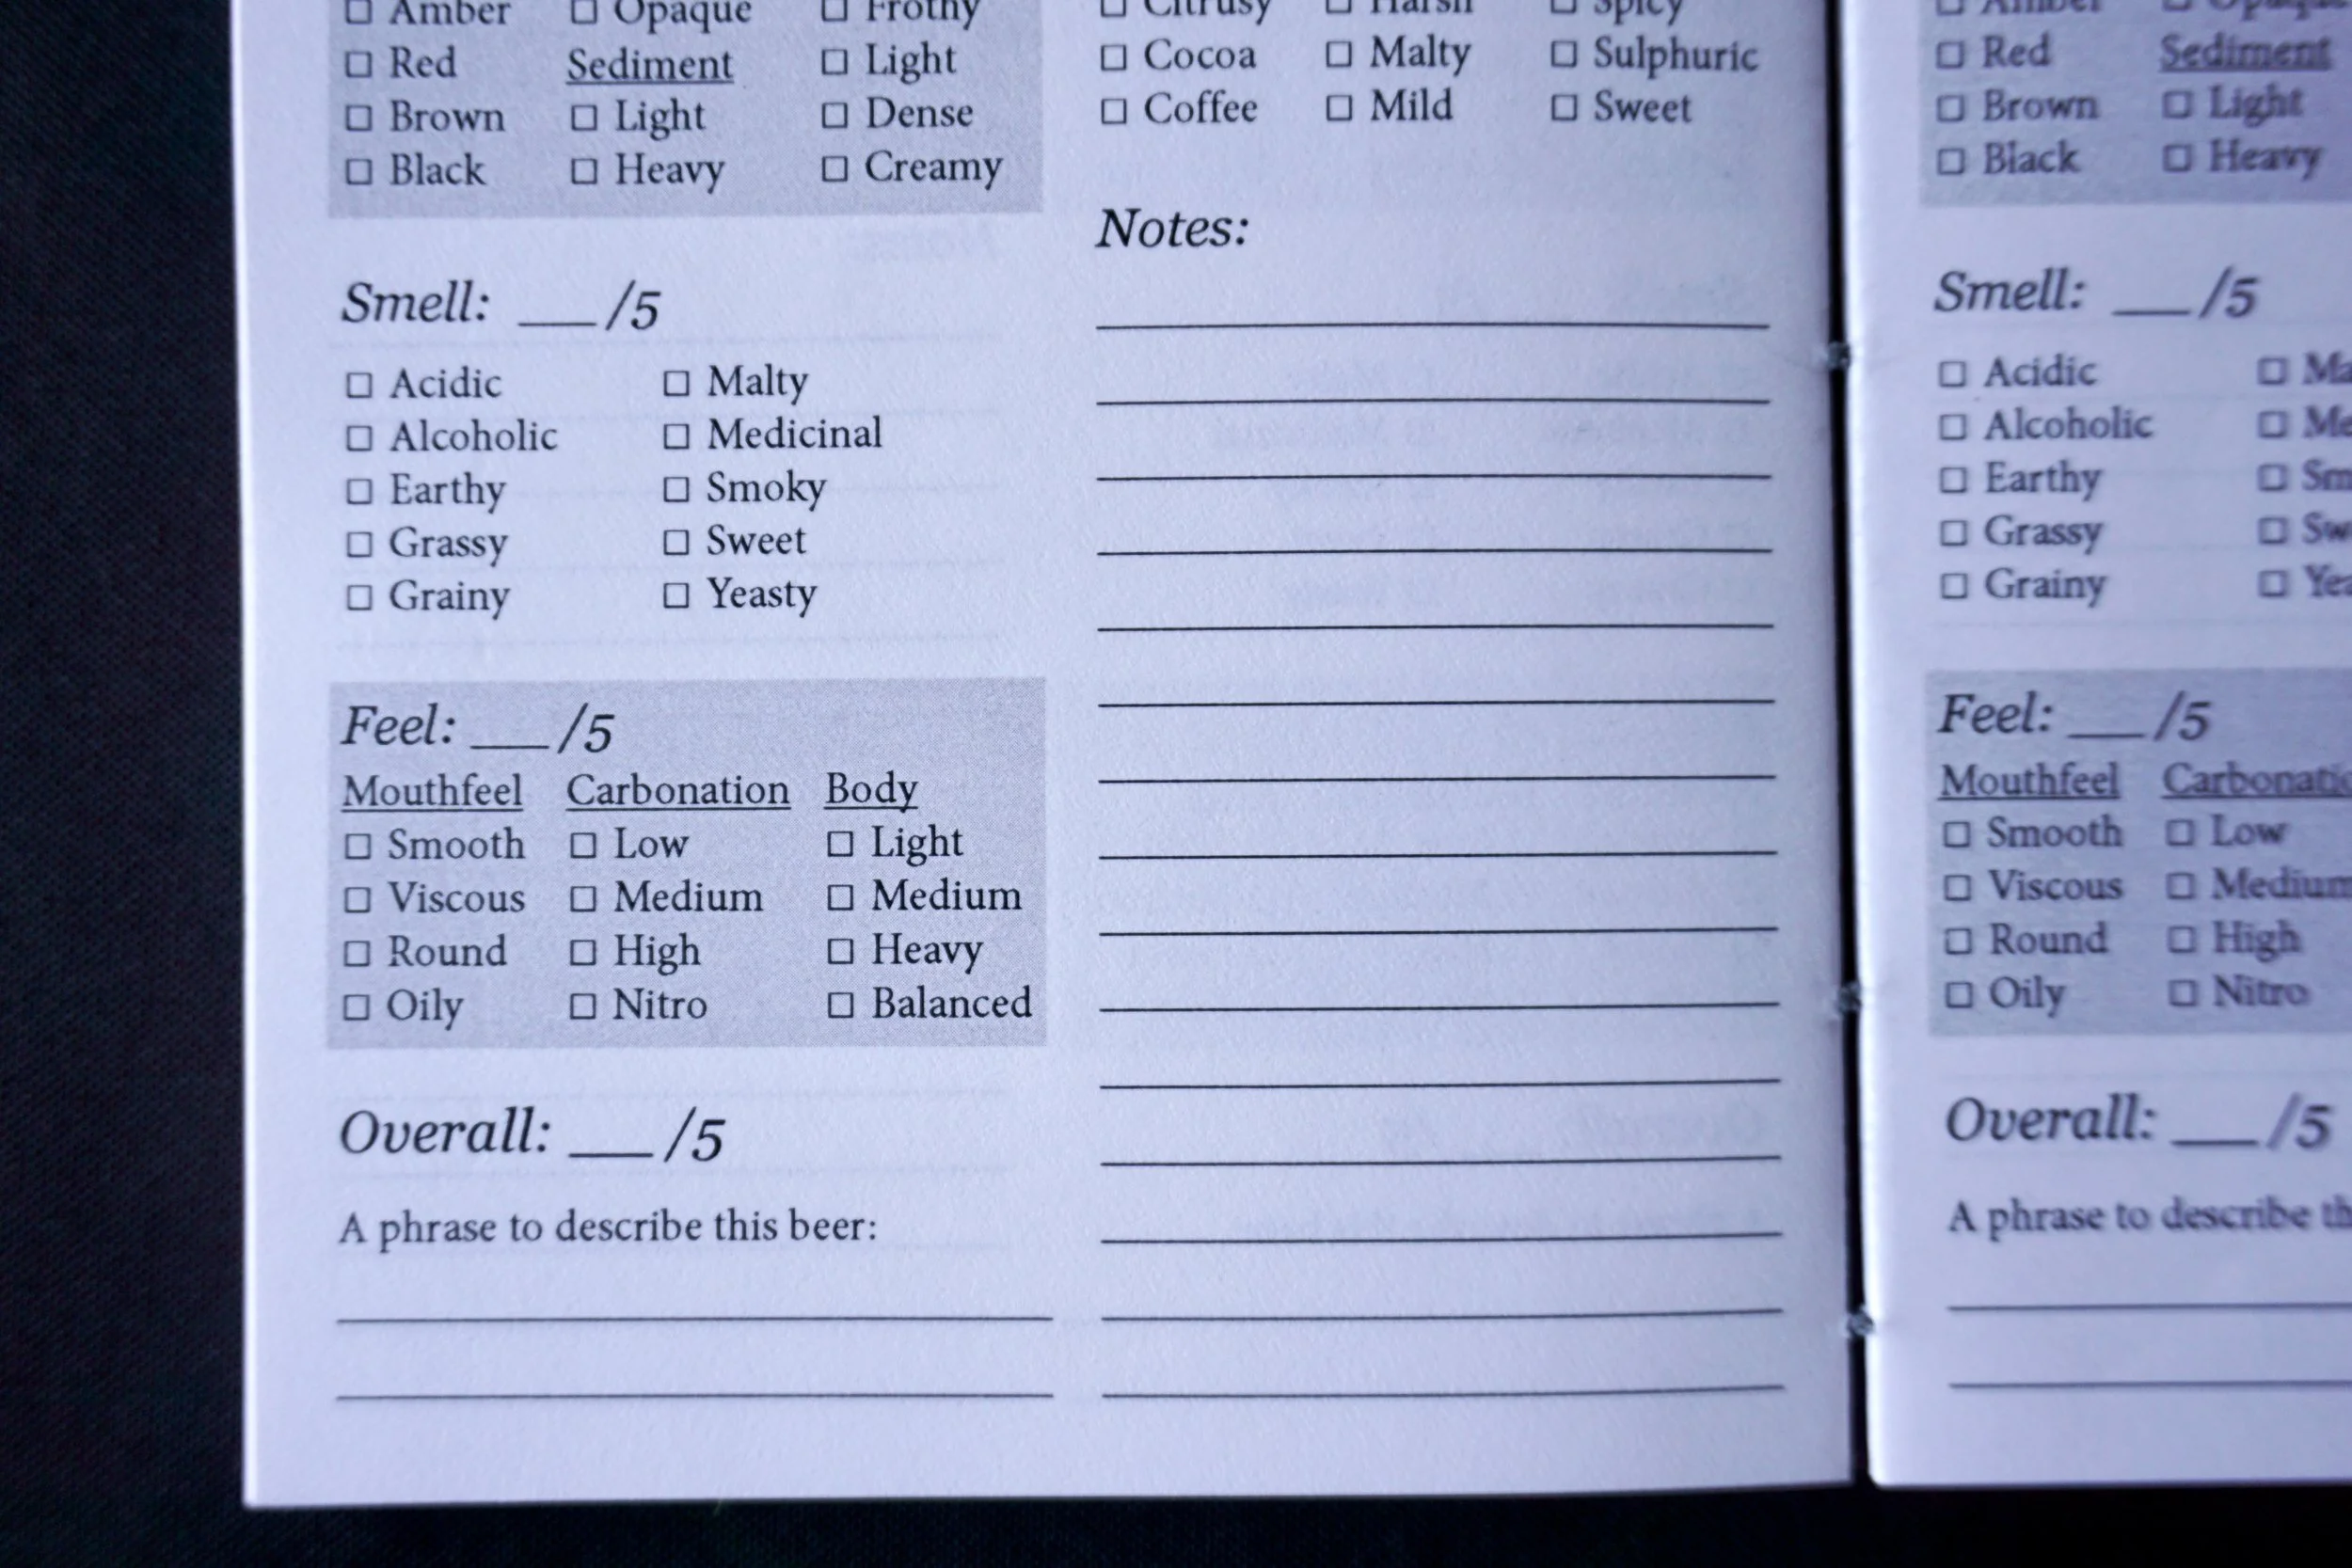 ☐ Amber ☐ Opaque ☐ Frothy
☐ Red Sediment ☐ Light
☐ Brown ☐ Light ☐ Dense
☐ Black ☐ Heavy ☐ Creamy
Smell: ___/5
☐ Acidic ☐ Malty
☐ Alcoholic ☐ Medicinal
☐ Earthy ☐ Smoky
☐ Grassy ☐ Sweet
☐ Grainy ☐ Yeasty
Feel: ___/5
Mouthfeel Carbonation Body
☐ Smooth ☐ Low ☐ Light
☐ Viscous ☐ Medium ☐ Medium
☐ Round ☐ High ☐ Heavy
☐ Oily ☐ Nitro ☐ Balanced
Overall: ___/5
A phrase to describe this beer:
☐ Citrusy ☐ Harsh ☐ Spicy
☐ Cocoa ☐ Malty ☐ Sulphuric
☐ Coffee ☐ Mild ☐ Sweet
Notes:
☐ Red Sediment
☐ Brown ☐ Light
☐ Black ☐ Heavy
Smell: ___/5
☐ Acidic ☐
☐ Alcoholic ☐
☐ Earthy ☐
☐ Grassy ☐
☐ Grainy ☐
Feel: ___/5
Mouthfeel Carbonatio
☐ Smooth ☐ Low
☐ Viscous ☐ Medium
☐ Round ☐ High
☐ Oily ☐ Nitro
Overall: ___/5
A phrase to describe th